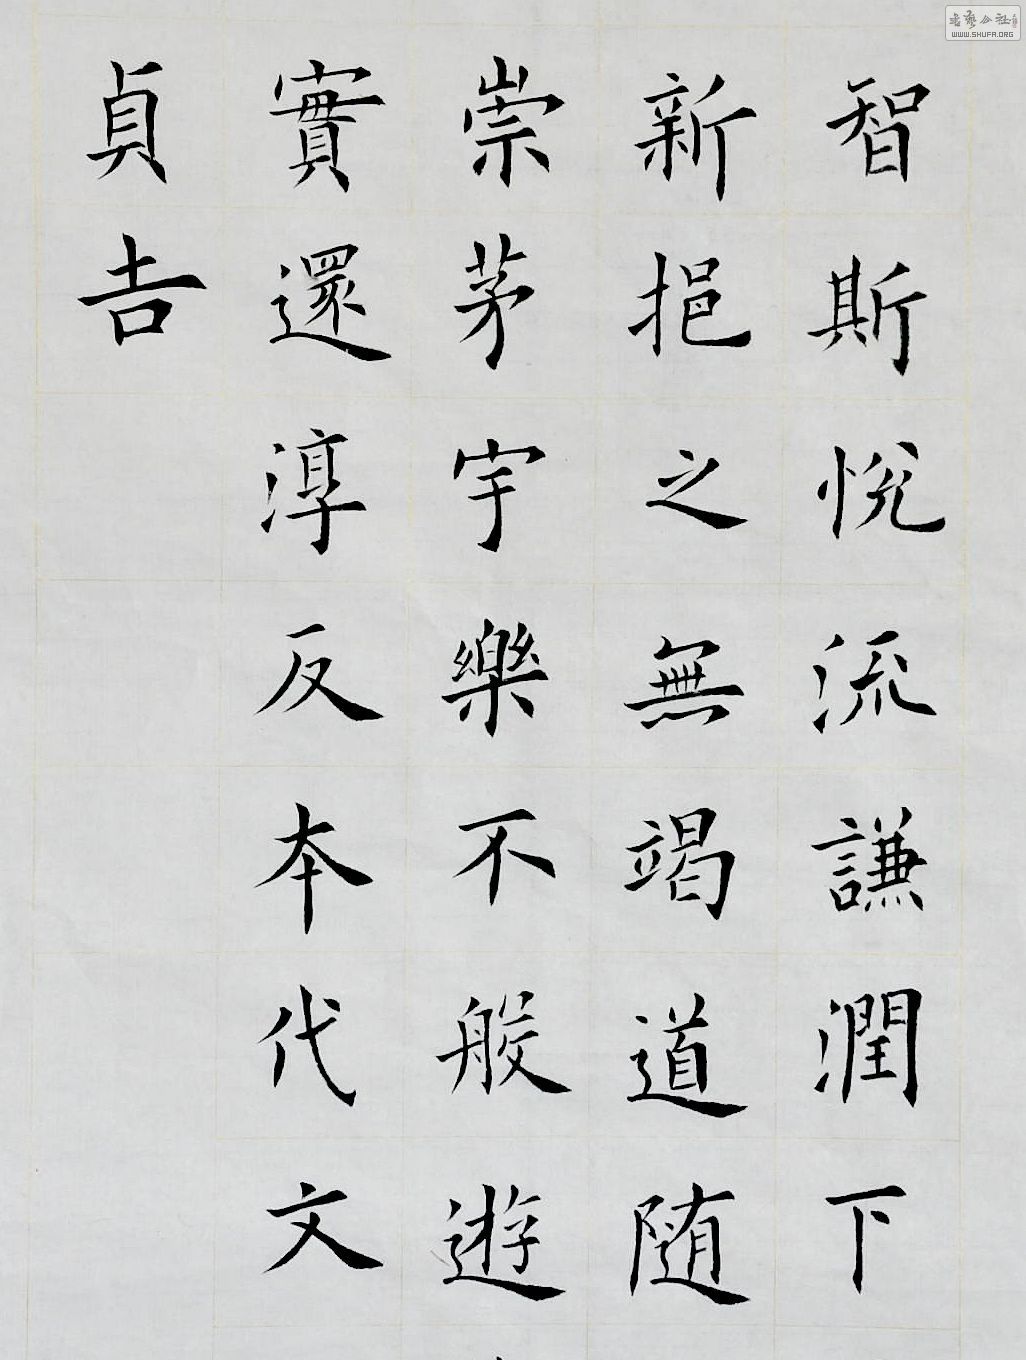 智斯悅流謙潤下
新挹之無竭道随
崇茅宇樂不般遊
實還淳反本代文
貞吉
WWW.SHUFA.ORG